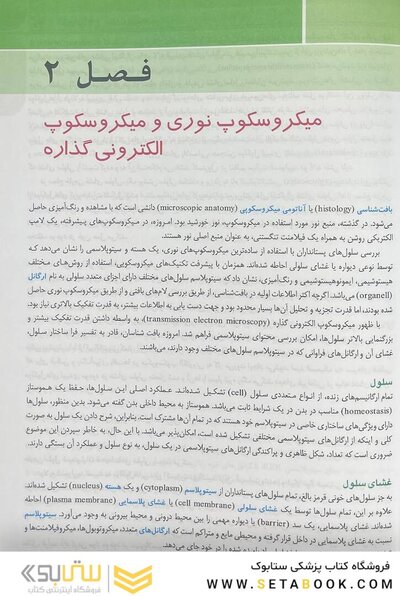 فـصـل ۲
میکروسکوپ نوری و میکروسکوپ
الکترونی گذاره
بافت‌شناسی (histology) یا آناتومی میکروسکوپی (microscopic anatomy) دانشی است که با مشاهده و رنگ‌آمیزی حاصل
می‌شود. در گذشته، منبع نور مورد استفاده در میکروسکوپ، نور خورشید بود. امروزه، در میکروسکوپ‌های پیشرفته، یک لامپ
الکتریکی روشن به همراه یک فیلامنت تنگستنی، به عنوان منبع اصلی نور هستند.
بررسی سلول‌های پستانداران با استفاده از ساده‌ترین میکروسکوپ‌های نوری، یک هسته و سیتوپلاسمی را نشان می‌دهد کـه
توسط نوعی دیواره یا غشای سلولی احاطه شده‌اند. همزمان با پیشرفت تکنیک‌های میکروسکوپی، استفاده از روش‌های مختلف
هیستوشیمی، ایمونوهیستوشیمی و رنگ‌آمیزی، نشان داد که سیتوپلاسم سلول‌های مختلف دارای اجزای متعدد سلولی به نام ارگانل
(organell) می‌باشد. اگرچه اکثر اطلاعات اولیه در بافت‌شناسی، از طریق بررسی لام‌های بافتی و از طریق میکروسکوپ نوری حاصل
شده بودند، اما قدرت تجزیه و تحلیل آن‌ها بسیار محدود بود و جهت دست یابی به اطلاعات بیشتر، به قدرت تفکیک بالاتری نیاز بود.
با ظهور میکروسکوپ الکترونی گذاره (transmission electron microscopy)، به واسطه داشتن قدرت تفکیک بیشتر و
بزرگنمایی بالاتر سلول‌ها، امکان بررسی محتوای سیتوپلاسمی فراهم شد. امروزه بافت شناسان، قادر به تفسیر فرا ساختار سلول،
غشای آن و ارگانل‌های فراوانی که در سیتوپلاسم سلول‌های مختلف وجود دارند، می‌باشند.
سلول
تمام ارگانیسم‌های زنده، از انواع متعددی سلول (cell) تشکیل شده‌اند. عملکرد اصلی این سلول‌ها، حفظ یک هموستاز
(homeostasis) مناسب در بدن در یک شرایط ثابت می‌باشد. هموستاز به محیط داخلی بدن گفته می‌شود. بدین منظور، سلول‌ها
دارای ویژگی‌های ساختاری خاصی در سیتوپلاسم خود هستند که در تمام آن‌ها مشترک است. بنابراین، شرح دادن یک سلول به صورت
کلی و اینکه از ارگانل‌های سیتوپلاسمی مختلفی تشکیل شده است، امکان‌پذیر می‌باشد. با این حال، به خاطر سپردن این موضوع
ضروری است که تعداد، شکل ظاهری و پراکندگی ارگانل‌های سیتوپلاسمی در یک سلول، به نوع سلول و عملکرد آن بستگی دارند.
غشای سلول
به جز سلول‌های خونی قرمز بالغ، تمام سلول‌های پستانداران از سیتوپلاسم (cytoplasm) و یک هسته (nucleus) تشکیل شده‌اند.
علاوه بر این، تمام سلول‌ها توسط یک غشای سلولی (cell membrane) یا غشای پلاسمایی (plasma membrane) احاطه
شده‌اند. غشای پلاسمایی، یک سد (barrier) یا دیواره مهمی را بین محیط درونی و محیط بیرونی به وجود می‌آورد. سیتوپلاسم
نسبت به غشای پلاسمایی در داخل قرار گرفته و محیطی مایع و متراکم است که ارگانل‌های متعدد، میکروتوبول‌ها، میکروفیلامنت‌ها و
را در خود جای می‌دهد.
فروشگاه کتاب پزشکی ستابوک
WWW.SETABOOK.COM
ستابوک
فروشگاه اینترنتی کتاب